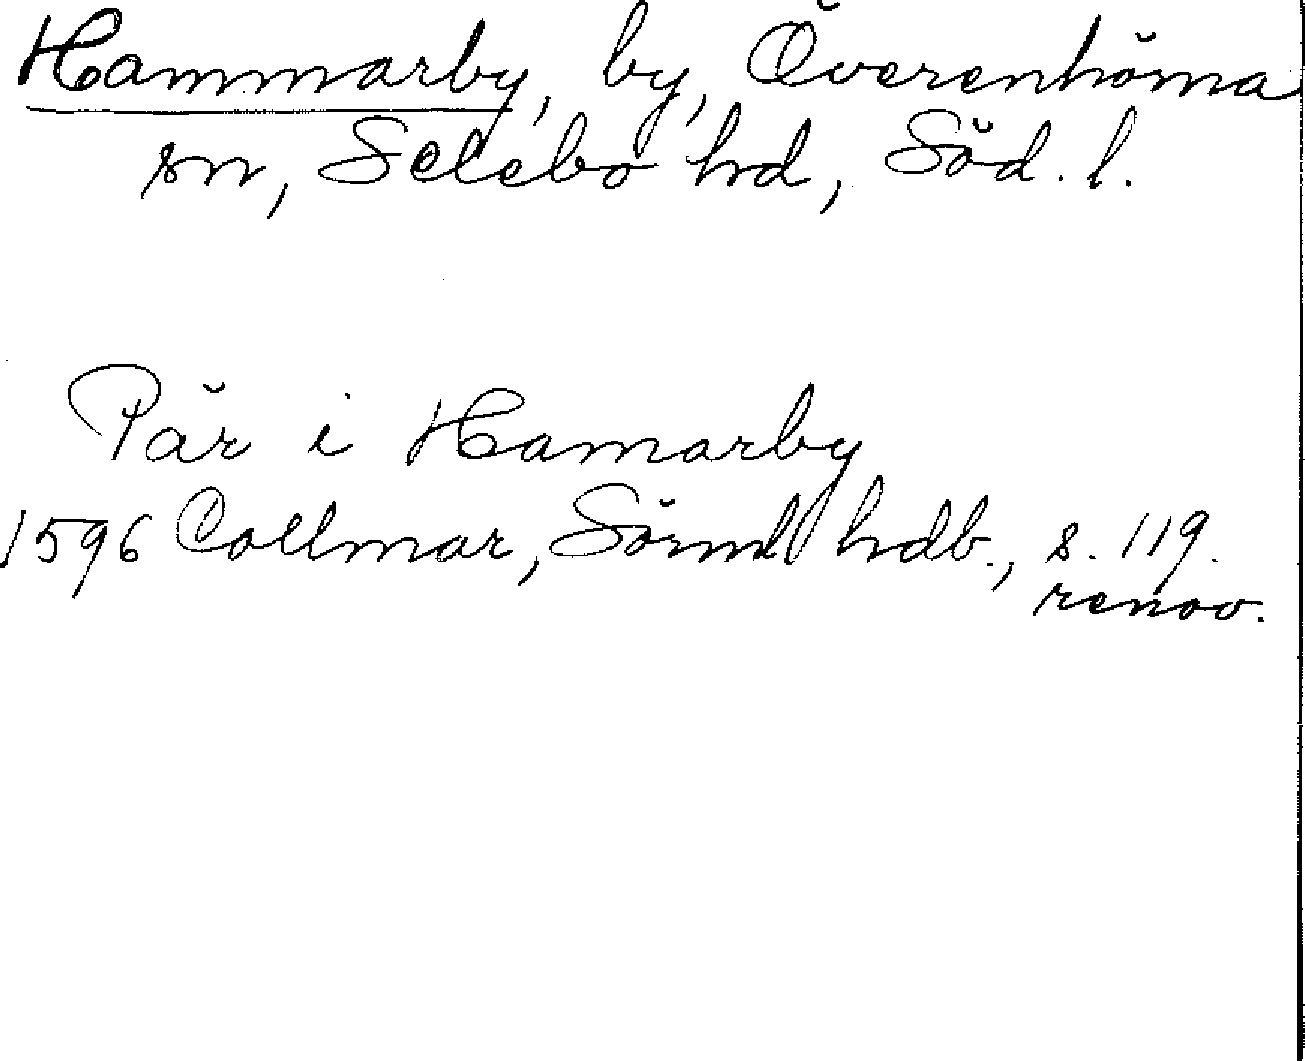 Hammarby, by, Överenhörna
sn, Selebo hd, Söd. l.
Pär i Hamarby
1596 Collmar, Sörml hdb., s. 119.
renov.